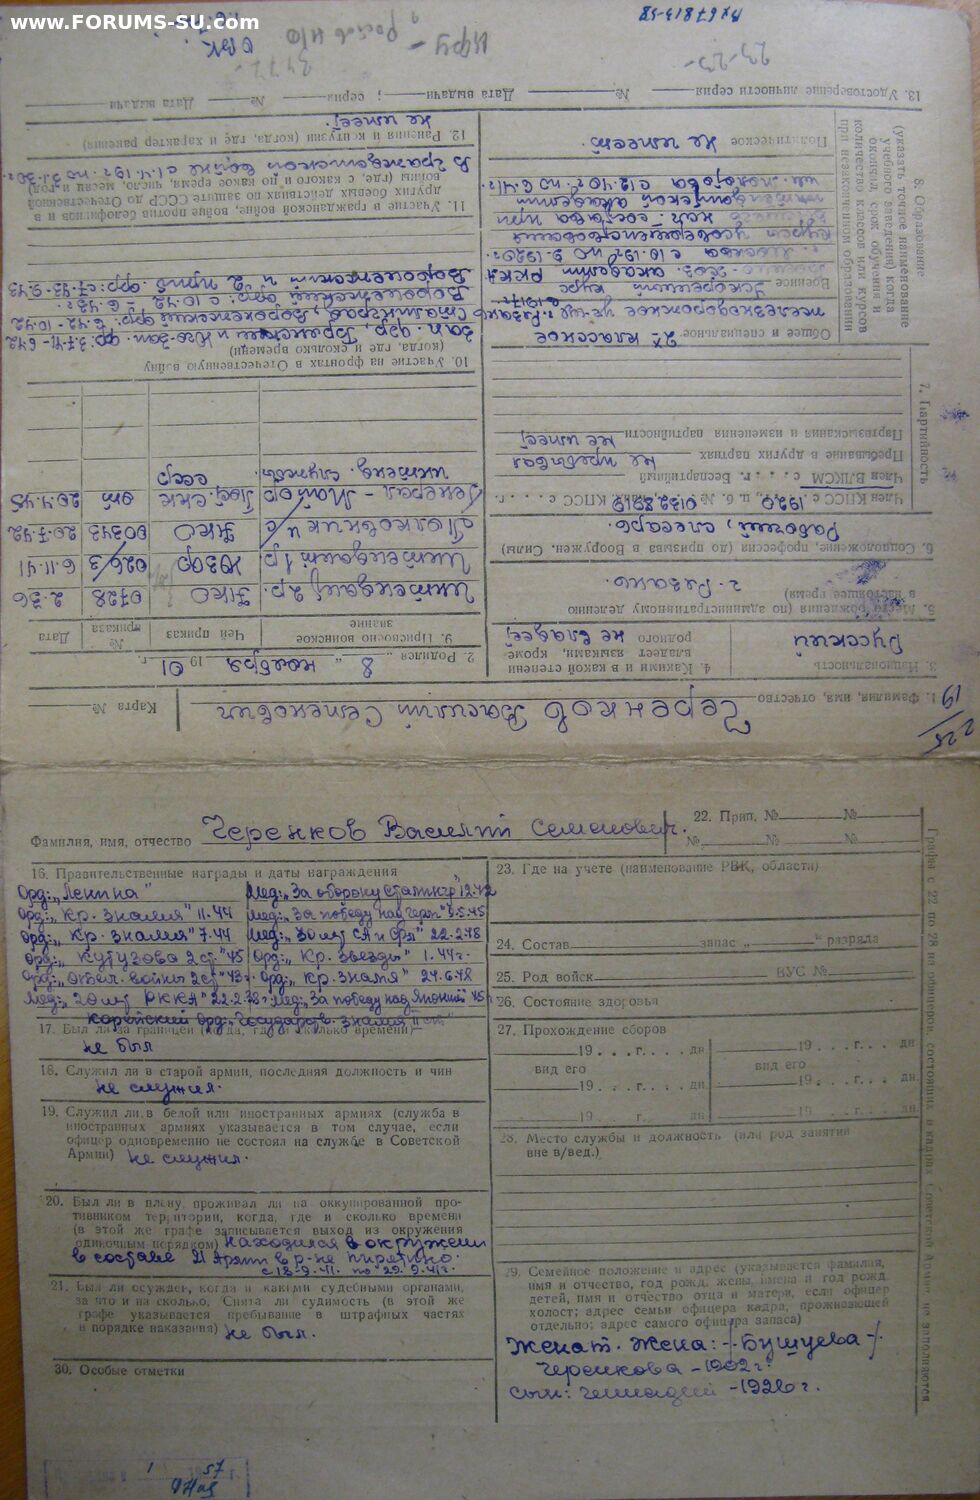 www.FORUMS-SU.com
1. Фамилия, имя, отчество Черенков Василий Семенович
Карта №
2. Родился „ 8 " ноября 1901 г.
3. Национальность Русский
4. Какими и в какой степени владеет языками, кроме родного не владеет
5. Место рождения (по административному делению в настоящее время)
г. Рязань.
6. Соцположение, профессия (до призыва в Вооружен. Силы)
Рабочий, слесарь.
7. Партийность
Член КПСС с 1920, п. б. №
Член ВЛКСМ с . . . . г. Беспартийный
Пребывание в других партиях не пребывал
Партвзыскания и изменения партийности не имеет
8. Образование
(указать точное наименование учебного заведения) когда окончил, срок обучения и количество классов или курсов при незаконченном образовании
Общее и специальное 2х классное
железнодорожное уч-ще г. Рязань
в 1917г.
Военное Ускоренный курс
академии РККА
г. Москва с 10.19г по 9.1920г.
курсы усовершенствования
нач. состава при
академии
им. Молотова с 12.40г по 6.41г.
Политическое Не имеет
9. Присвоено воинское звание
Чей приказ
№ приказа
Дата
Интендант 2 р.
НКО
0728
2.36
Интендант 1 р
ЮЗФр
026/3
6.11.41
Полковник и/с
НКО
00343
20.7.42
Генерал-Майор
интенд. службы.
Пос. СНК
СССР
от
20.4.45
10. Участие на фронтах в Отечественную войну
(когда, где и сколько времени)
11. Участие в гражданской войне, войне против белофинов и других боевых действиях по защите СССР до Отечественной войны (где, с какого и по какое время, число, месяц и год)
В гражданской войне с 1.4.19г по
12. Ранения и контузии (когда, где и характер ранения)
Не имеет.
13. Удостоверение личности серия
№
Дата выдачи
; серия
№
Дата выдачи
Фамилия, имя, отчество Черенков Василий Семенович.
16. Правительственные награды и даты награждения
Орд: „Ленина"
Мед: „За оборону Сталингр" 12.42
Орд: „Кр. Знамя" 11.44
Мед: „За победу над Герм" 9.5.45
Орд: „Кр. Знамя" 7.44
Мед: „30 лет СА и Фл" 22.2.48
Орд: „Кутузова 2 ст" 45
Орд: „Кр. Звезды" 1.44г.
Орд: „Отеч. войны 2 ст" 43г.
Орд: „Кр. Знамя" 24.6.48
Мед: „20 лет РККА" 22.2.38г
Мед: „За победу над Японией" 45г
Корейский орд: „Государств. знамя
17. Был ли за границей
не был
18. Служил ли в старой армии, последняя должность и чин
не служил.
19. Служил ли в белой или иностранных армиях (служба в
иностранных армиях указывается в том случае, если
офицер одновременно не состоял на службе в Советской
Армии) не служил.
20. Был ли в плену, проживал ли на оккупированной про-
тивником территории, когда, где и сколько времени
(в этой же графе записывается выход из окружения
одиночным порядком) находился в окружении
в составе 21 Армии в р-не Пирятино.
с 18.9.41. по 29.9.41г.
21. Был ли осужден, когда и какими судебными органами,
за что и на сколько. Снята ли судимость (в этой же
графе указывается пребывание в штрафных частях
в порядке наказания) не был.
30. Особые отметки
22. Прип. №
№
№
№
№
23. Где на учете (наименование РВК, области)
24. Состав
запас „
" разряда
25. Род войск
ВУС №
26. Состояние здоровья
27. Прохождение сборов
19 . . . г. . . . дн
19 . . . г. . . . дн
вид его
вид его
19 . . . г. . . . дн.
19 . . . г. . . . дн.
19 . . . г. . . . дн.
19 . . . г. . . . дн.
28. Место службы и должность (или род занятий
вне в/вед.)
29. Семейное положение и адрес (указывается фамилия,
имя и отчество, год рожд. жены, имена и год рожд
детей, имя и отчество отца и матери, если офицер
холост; адрес семьи офицера кадра, проживающей
отдельно; адрес самого офицера запаса)
Женат. Жена: -/-Бушуева-/-
Черенкова - 1902г.
сын: Геннадий - 1926г.
Графы с 22 по 28 на офицеров, состоящих в кадрах Советской Армии не заполняются